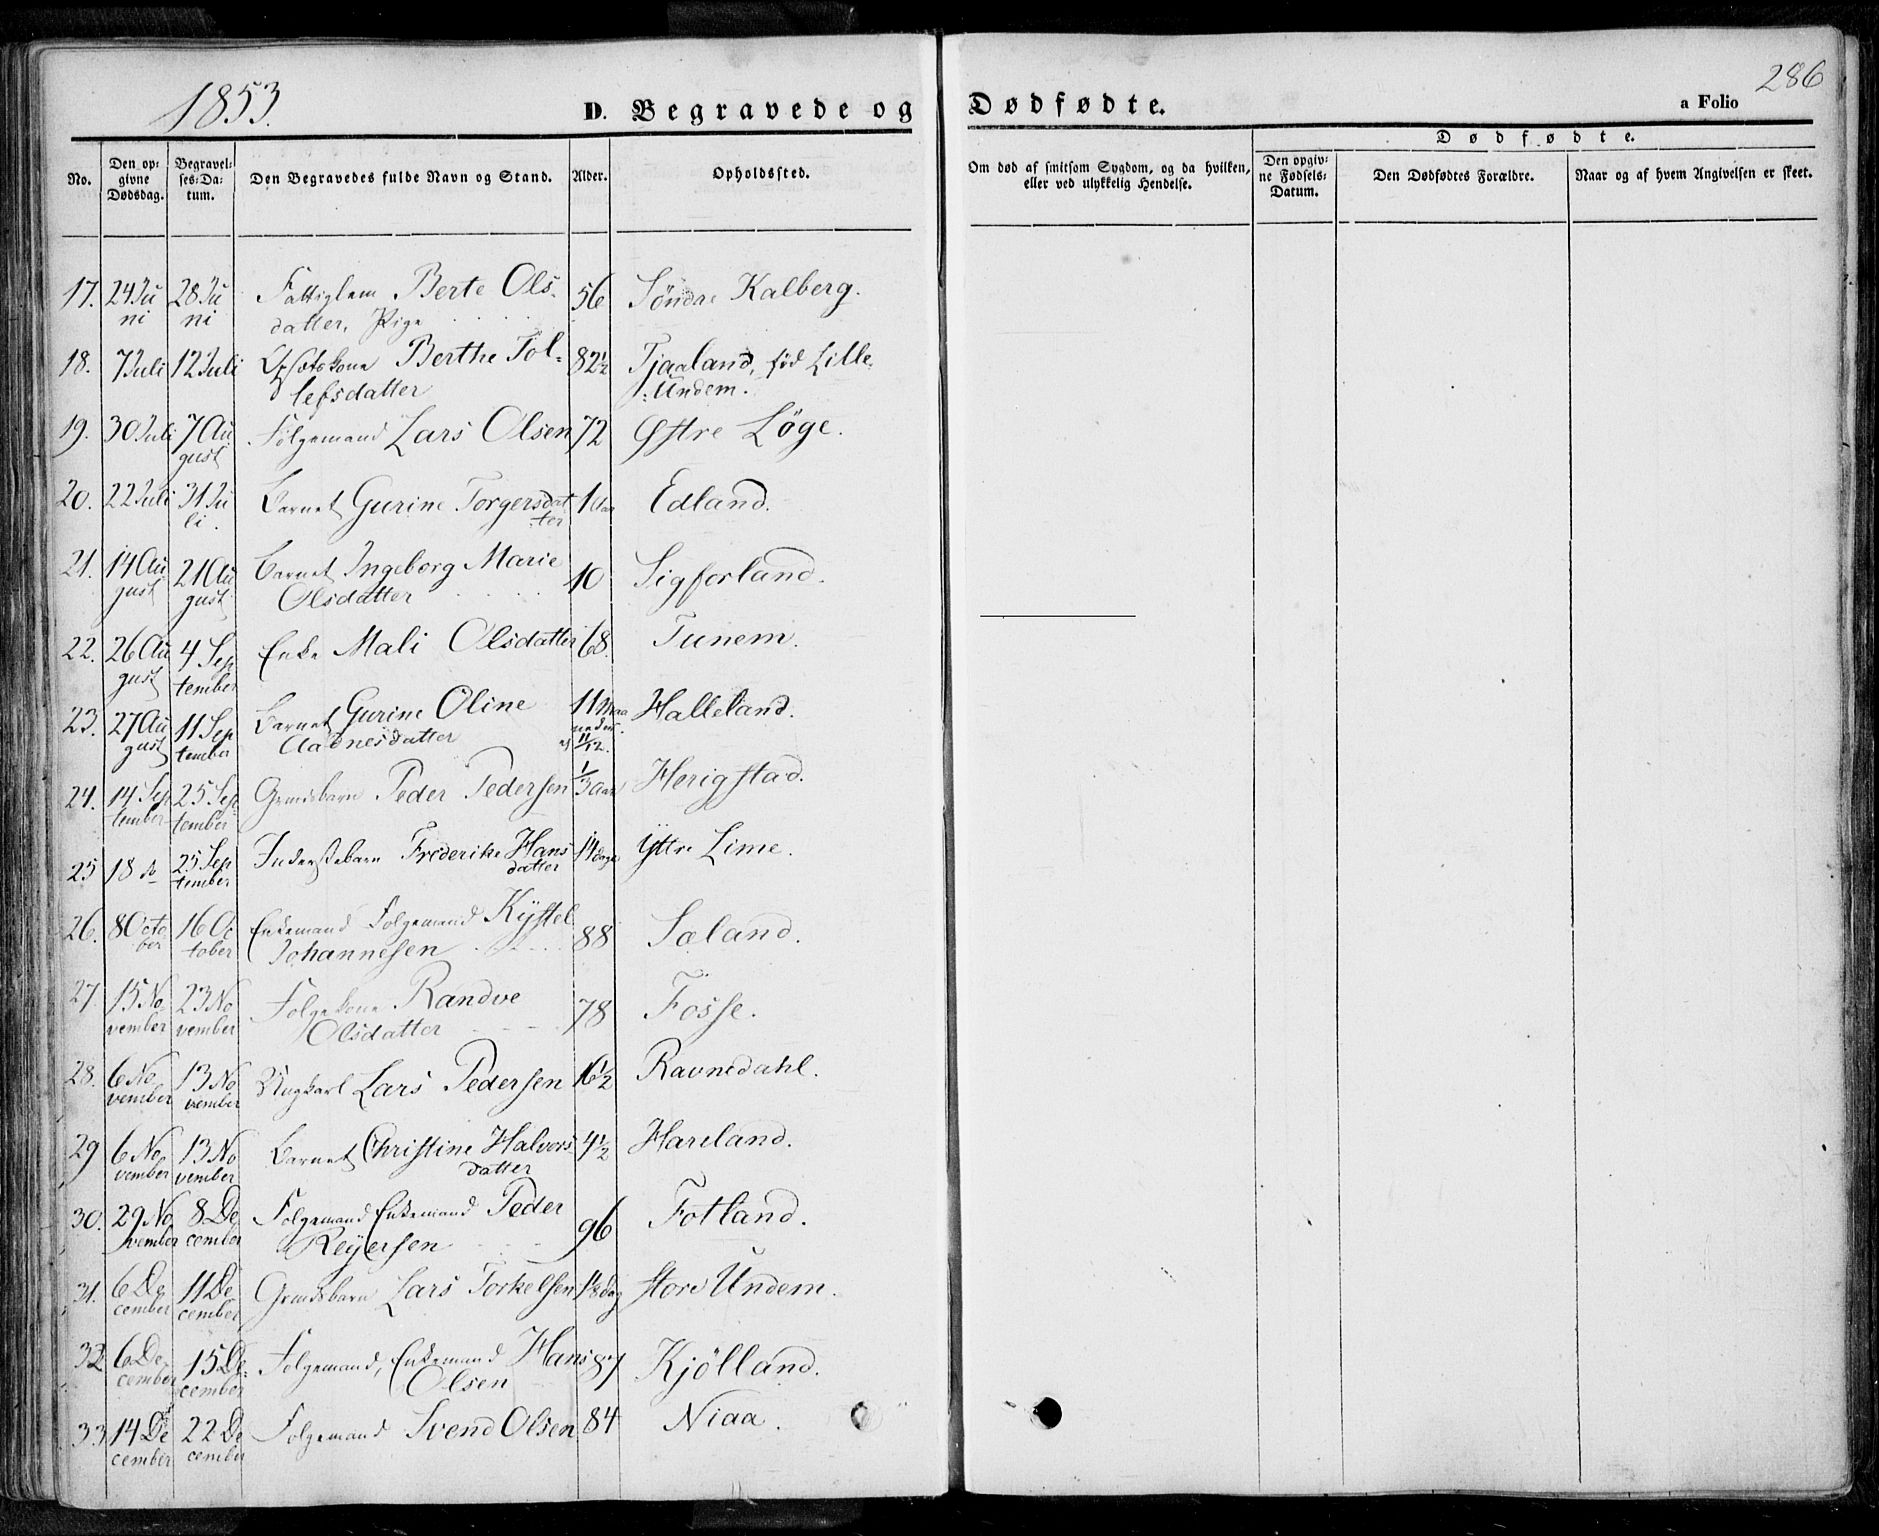 1853.
286
D. Begravede og Dødfødte.
a Folio
No.
Den opgivne Dødsdag.
Begravelses-Datum.
Den Begravedes fulde Navn og Stand.
Alder.
Opholdssted.
Om død af smitsom Sygdom, og da hvilken, eller ved ulykkelig Hendelse.
Dødfødte.
Den opgivne Fødsels-Datum.
Den Dødfødtes Forældre.
Naar og af hvem Angivelsen er skeet.
17. 24 Juni 28 Juni Fattiglem Berte Olsdatter, Pige 56 Söndre Kalberg.
18. 7 Juli 12 Juli Berthe Tollefsdatter 82½ Tjaaland, föd Lille-Undem.
19. 30 Juli 7 August Folgemand Lars Olsen 72 Østre Löge.
20. 22 Juli 31 Juli. Barnet Gurine Torgersdatter 1 Aar Edland.
21. 14 August 21 August Barnet Ingeborg Marie Olsdatter 10 Sigforland.
22. 26 August 4 September Enke Mali Olsdatter 68. Tunem.
23. 27 August 11 September Barnet Gurine Oline Aadnesdatter 11 Maaneder. 11/12. Halleland.
24. 14 September 25 September Grmdsbarn Peder Pedersen 1/3 Aar Herigstad.
25 18 do 25 September Inderstebarn Frederike Hansdatter 14 dage Yttre Lime.
26. 8 October 16 October Enkemand Folgemand Kystel Johannesen 88 Sæland.
27. 15 November 23 November Folgekone Randve Olsdatter 78 Fosse.
28. 6 November 13 November Ungkarl Lars Pedersen 16½ Ravnedahl.
29 6 November 13 November Barnet Christine Halvorsdatter 4½ Hareland.
30. 29 November 8 December Folgemand Enkemand Peder Reyersen 96 Fotland.
31. 6 December 11 December Grmdsbarn Lars Torkelsen Store Undem.
32 6 December 15 December Folgemand, Enkemand Hans Olsen 87 Kjölland.
33. 14 December 22 December Folgemand Svend Olsen 84 Niaa.